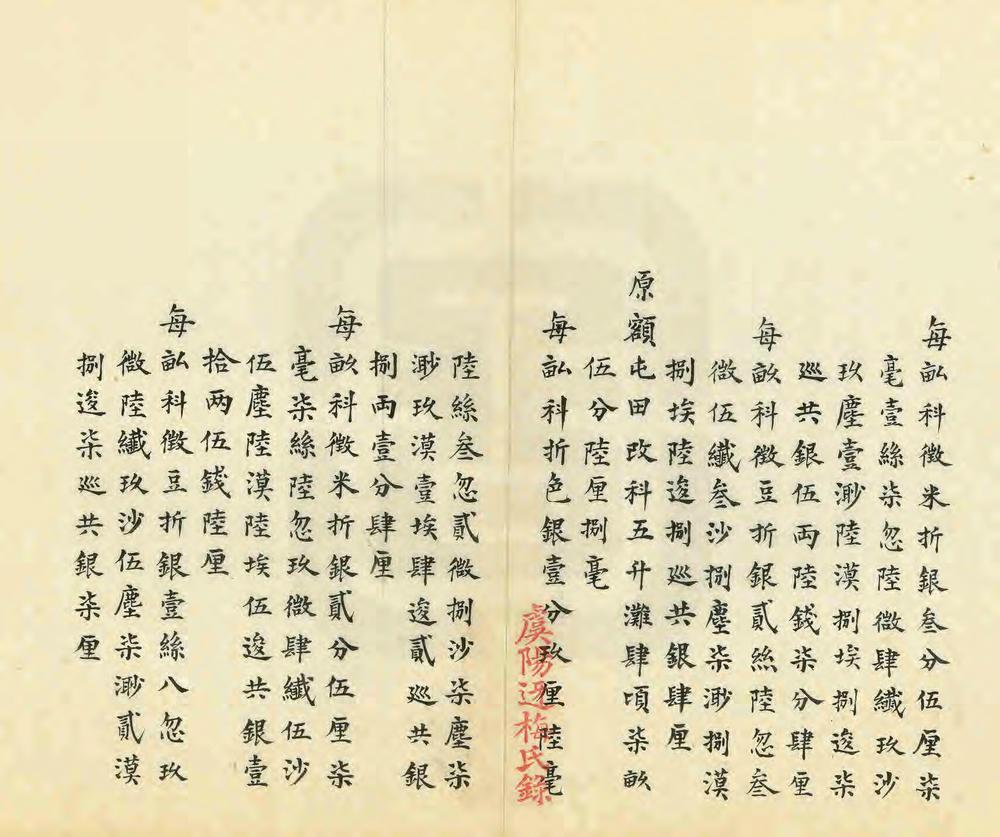 每畆科徵米折銀叁分伍厘柒
毫壹絲柒忽陸微肆纖玖沙
玖塵壹渺陸漠捌埃捌逡柒
巡共銀伍両陸錢柒分肆厘
每畝科徵豆折銀貳絲陸忽叁
微伍纖叁沙捌塵柒渺捌漠
捌埃陸逡捌巡共銀肆厘
原額屯田改科五升灘肆頃柒畝
伍分陸厘捌毫
每畆科折色銀壹分玖厘陸毫
虞陽迎梅氏錄
陸絲叁忽貳微捌沙柒塵柒
渺玖漠壹埃肆逡貳巡共銀
捌両壹分肆厘
每畝科徵米折銀貳分伍厘柒
毫柒絲陸忽玖微肆纖伍沙
伍塵陸漠陸埃伍逡共銀壹
拾両伍錢陸厘
每畆科徵豆折銀壹絲八忽玖
微陸纖玖沙伍塵柒渺貳漠
捌逡柒巡共銀柒厘